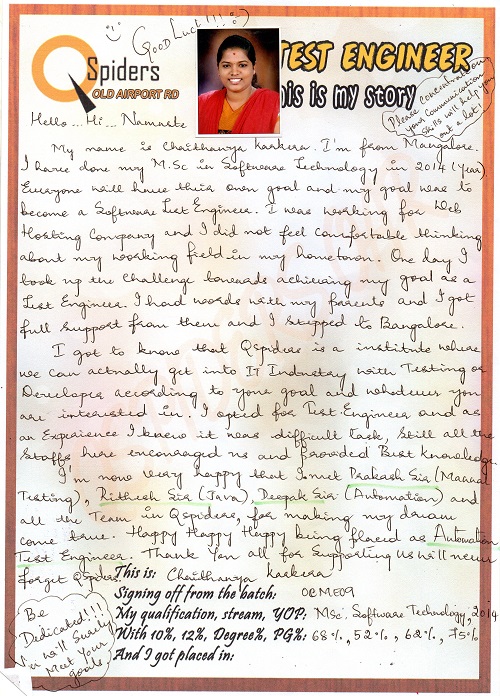 GOOD LUCK!!! :)
Spiders
OLD AIRPORT RD
TEST ENGINEER
his is my story
Please concentration
your Communication
skills will help you
out a lot!
Hello... Hi... Namaste
My name is Chaithanya Karkera. I'm from Mangalore.
I have done my M.Sc in Software Technology in 2014 (year)
Everyone will have their own goal and my goal was to
become a Software Test Engineer. I was working for Web
Hosting Company and I did not feel comfortable thinking
about my working field in my hometown. One day I
took up the challenge towards achieving my goal as a
Test Engineer. I had words with my parents and I got
full support from them and I stepped to Bangalore.
I got to know that Qspiders is a institute where
we can actually get into IT Industry with Testing or
Developer according to your goal and whatever you
are interested in. I opted for Test Engineer and as
an Experience I knew it was difficult task, still all the
Staffs here encouraged us and provided Best Knowledge.
I'm now very happy that I met Prakash Sir (Manual
Testing), Rithesh Sir (Java), Deepak Sir (Automation) and
all the Team in Qspiders, for making my dream
come true. Happy Happy Happy being placed as Automation
Test Engineer. Thank You all for Supporting us will never
forget QSpiders
This is: Chaithanya Karkera
Signing off from the batch: OCME09
My qualification, stream, YOP: MSc. Software Technology, 2014
With 10%, 12%, Degree%, PG%: 68%, 52%, 62%, 75%
And I got placed in:
Be
Dedicated!!!
You will Surely
Meet Your
goals